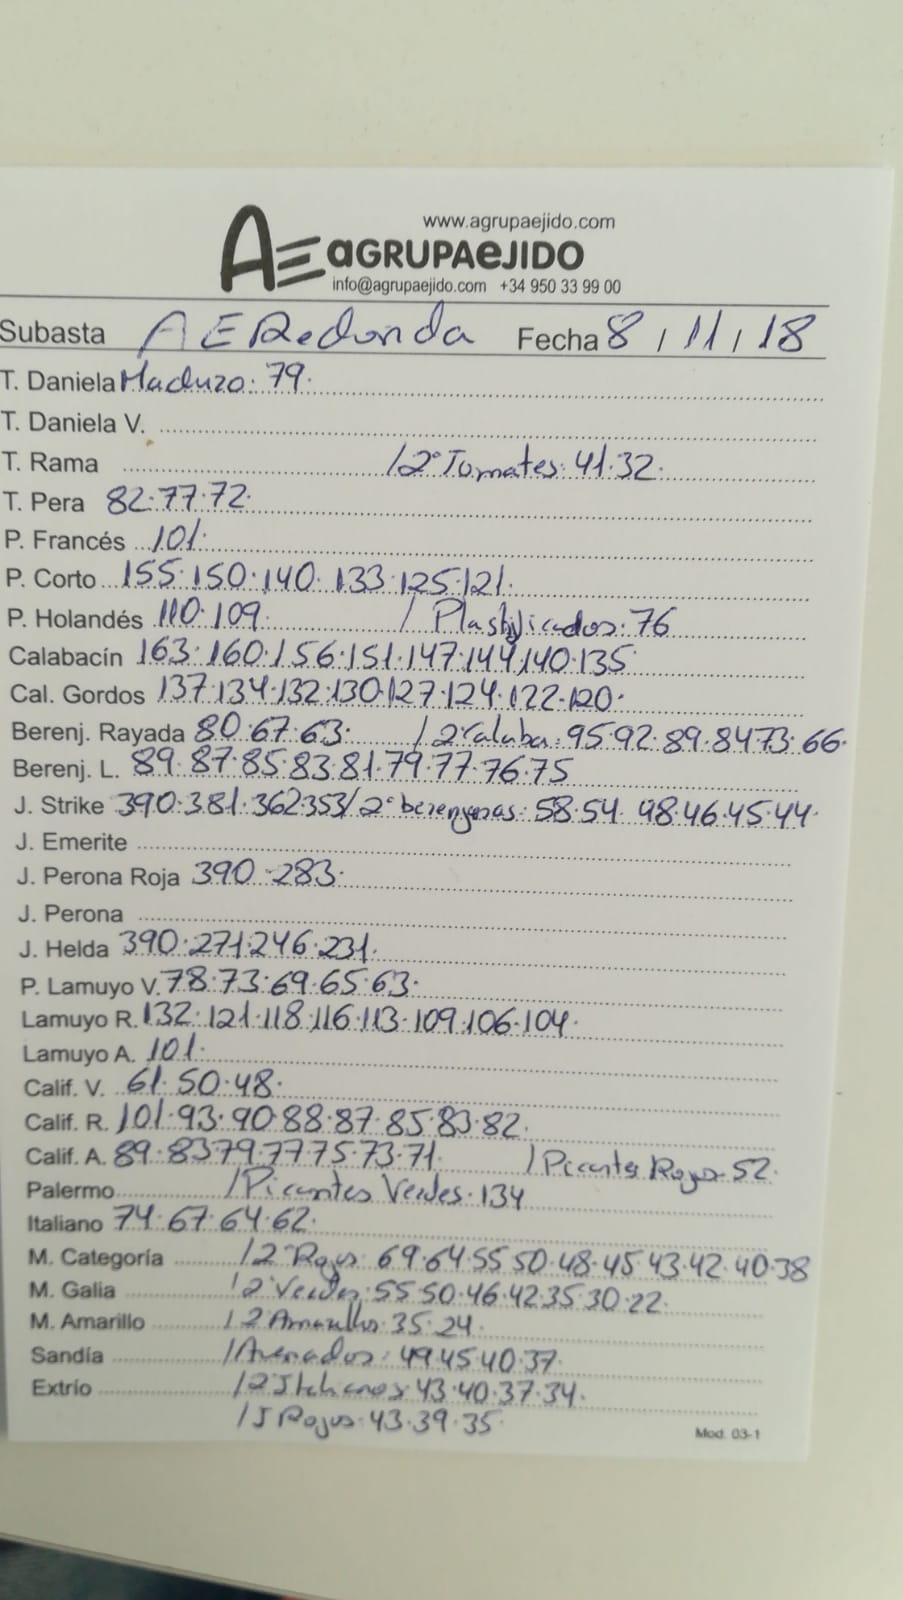 www.agrupaejido.com
AE aGRUPAeJIDO
info@agrupaejido.com +34 950 33 99 00
Subasta AERedonda Fecha 8/11/18
T. Daniela Maduro: 79.
T. Daniela V.
T. Rama /2ª Tomates: 41.32.
T. Pera 82.77.72.
P. Francés 101.
P. Corto 155.150.140.133.125.121.
P. Holandés 110.109. / Plastificados.76
Calabacín 163.160.156.151.147.144.140.135
Cal. Gordos 137.134.132.130.127.124.122.120.
Berenj. Rayada 80.67.63. /2ª Calaba: 95.92.89.84 73.66.
Berenj. L. 89.87.85.83.81.79.77.76.75
J. Strike 390.381.362 353/2ª berengenas: 58.54. 48.46.45.44.
J. Emerite
J. Perona Roja 390.283.
J. Perona
J. Helda 390.271.246.231.
P. Lamuyo V. 78.73.69.65.63.
Lamuyo R. 132.121.118.116.113.109.106.104.
Lamuyo A. 101.
Calif. V. 61.50.48.
Calif. R. 101.93.90.88.87.85.83.82.
Calif. A. 89.83 79.77 75.73.71. /Picantes Rojos 52.
Palermo /Picantes Verdes.134
Italiano 74.67.64.62.
M. Categoría /2ª Rojos: 69.64.55 50.48.45.43.42.40.38
M. Galia /2 Verdes: 55 50.46.42 35.30.22.
M. Amarillo /2 Amarillo.35.24.
Sandía / 49.45.40.37.
Extrío /2 Italianos 43.40.37.34.
/J Rojos.43.39.35.
Mod. 03-1